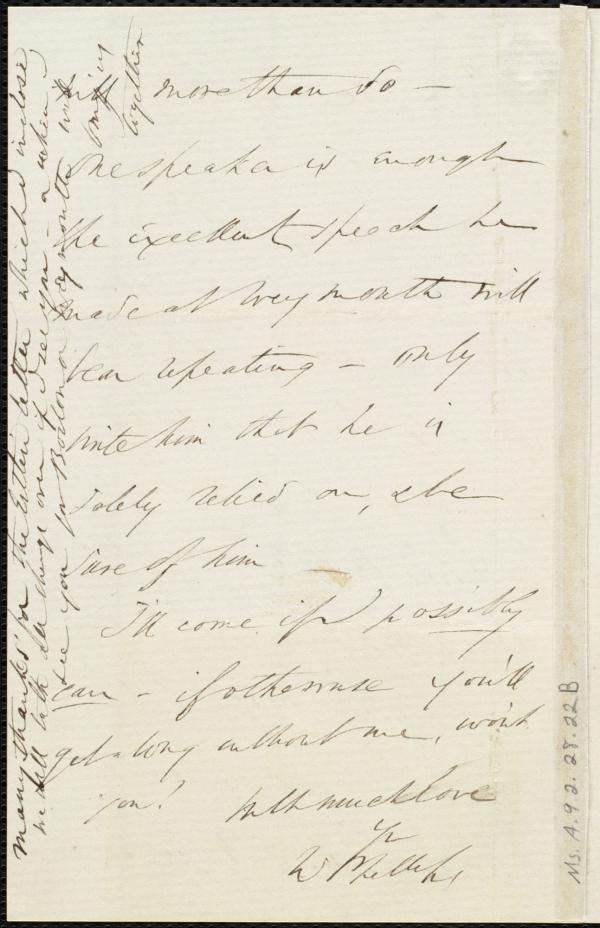 will more than do —
One speaker is enough
the excellent speech he
made at Weymouth will
bear repeating — only
write him that he is
solely relied on, & be
sure of him
I'll come if I possibly
can — if otherwise you'll
get along without me, won't
you?
With much love
Yr
W Phillips
many thanks for the letter which I inclose
we will talk over if I see you
see you in Boston or Weymouth
together
Ms. A.9.2.28.22B